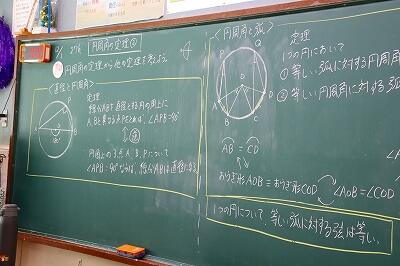 円周角の定理②
円周角の定理から他の定理を考えよう。
<直径と円周角>
定理
線分ABを直径とする円の周上に
A,Bと異なる点Pをとれば、∠APB=90°
逆
円周上の3点A,B,Pについて
∠APB=90°ならば、線分ABは直径になる
P
A
B
180°
<円周角と弧>
P
Q
O
A
B
C
D
定理
1つの円において
① 等しい弧に対する円周角
② 等しい円周角に対する弧
AB = CD
おうぎ形AOB≡おうぎ形COD
∠AOB=∠COD
1つの円について、等しい弧に対する弦は等しい。